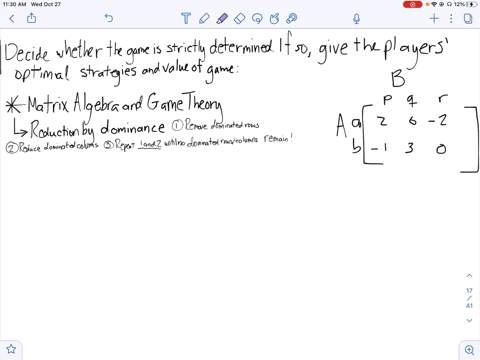 11:30 AM Wed Oct 27
12%
Decide whether the game is strictly determined. If so, give the players'
optimal strategies and value of game:
* Matrix Algebra and Game Theory
↳ Reduction by dominance ① Remove dominated rows
② Reduce dominated columns ③ Repeat 1 and 2 until no dominated rows/columns remain!
B
p q r
A a 2 6 -2
b -1 3 0
17
/
41